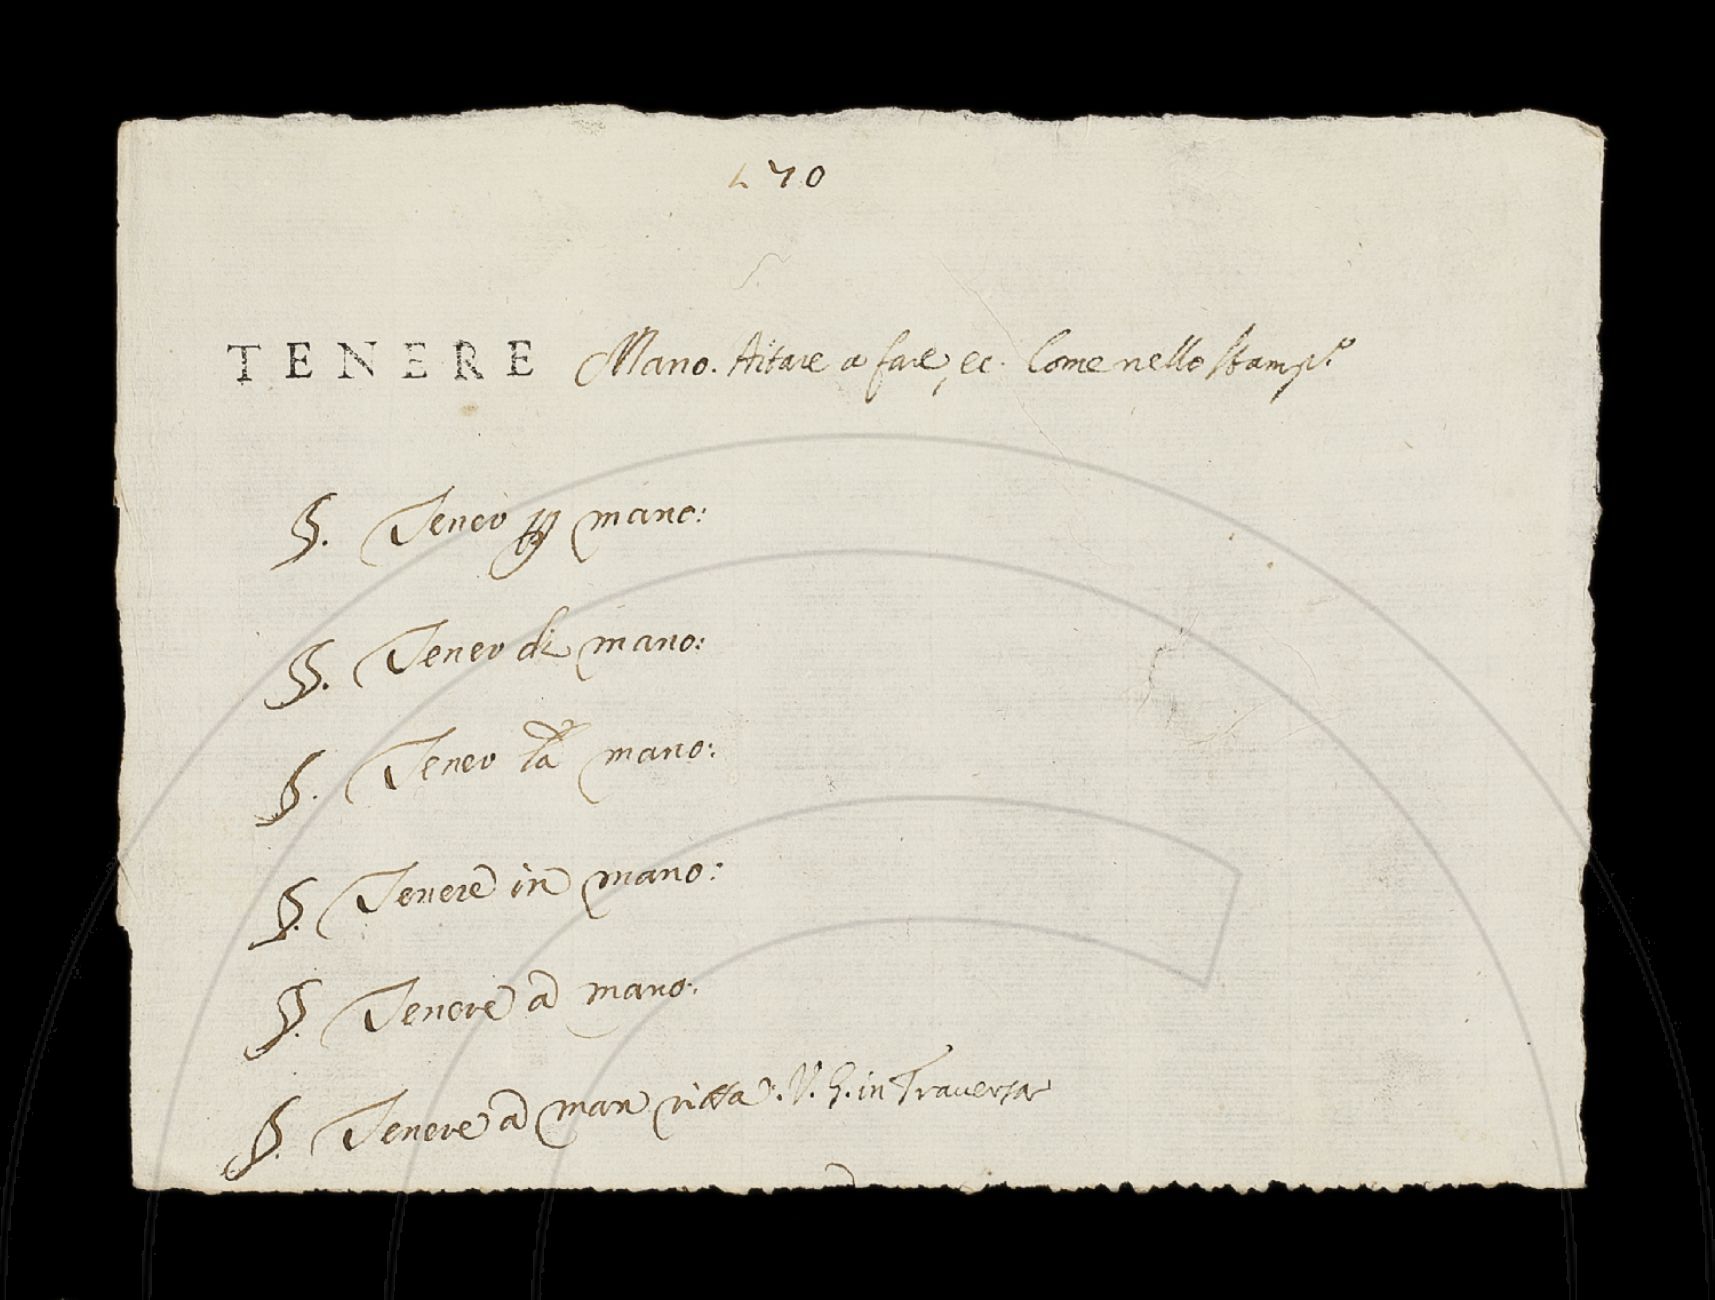 270
TENERE Mano. Aitare a fare, ec. Come nello stamp.º
§. Tener p mano:
§. Tener di mano:
§. Tener la mano:
§. Tenere in mano:
§. Tenere a mano:
§. Tenere a man ritta: V. §. in Traversa